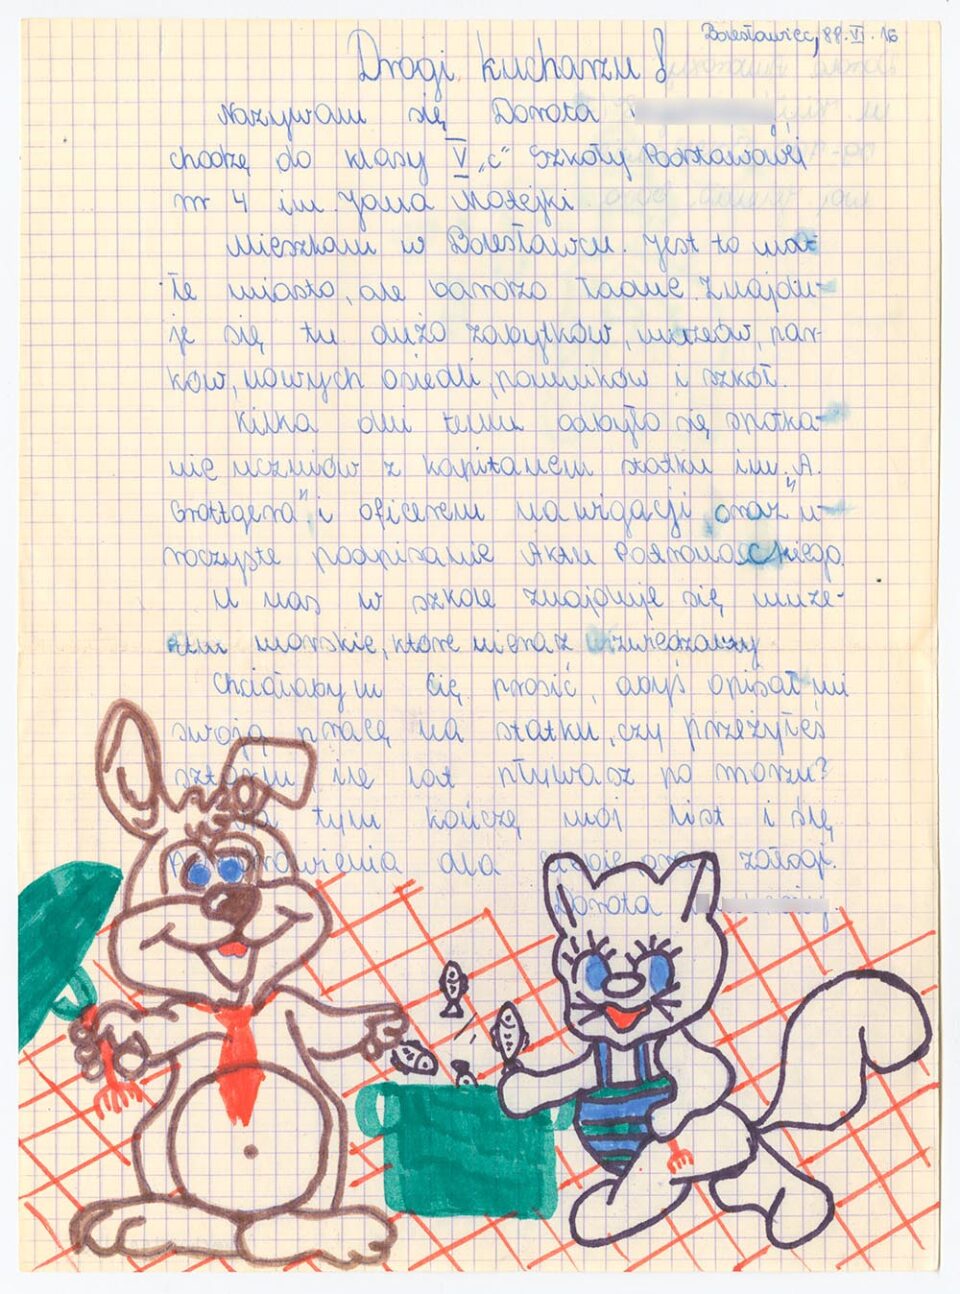 Bolesławiec, 88.VI.16
Drogi kucharzu!
Nazywam się Dorota
chodzę do klasy V „c” Szkoły Podstawowej
nr 4 im. Jana Matejki.
Mieszkam w Bolesławcu. Jest to ma-
łe miasto, ale bardzo ładne. Znajdu-
je się tu dużo zabytków, muzeów, par-
ków, nowych osiedli, pomników i szkół.
Kilka dni temu odbyło się spotka-
nie uczniów z kapitanem statku im. „A.
Grottgera” i oficerem nawigacji oraz u-
roczyste podpisanie Aktu Patronackiego.
U nas w szkole znajduje się muze-
um morskie, które nieraz zwiedzamy.
Chciałabym Cię prosić, abyś opisał mi
swoją pracę na statku, czy przeżyłeś
sztorm, ile lat pływasz po morzu?
Na tym kończę mój list i ślę
Pozdrowienia dla załogi.
Dorota